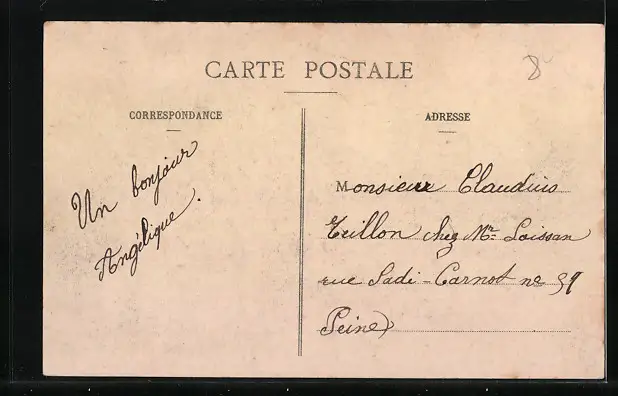 CARTE POSTALE
8
CORRESPONDANCE
Un bonjour
Angélique.
ADRESSE
Monsieur Claudius
chez Mr
rue Sadi-Carnot no 59